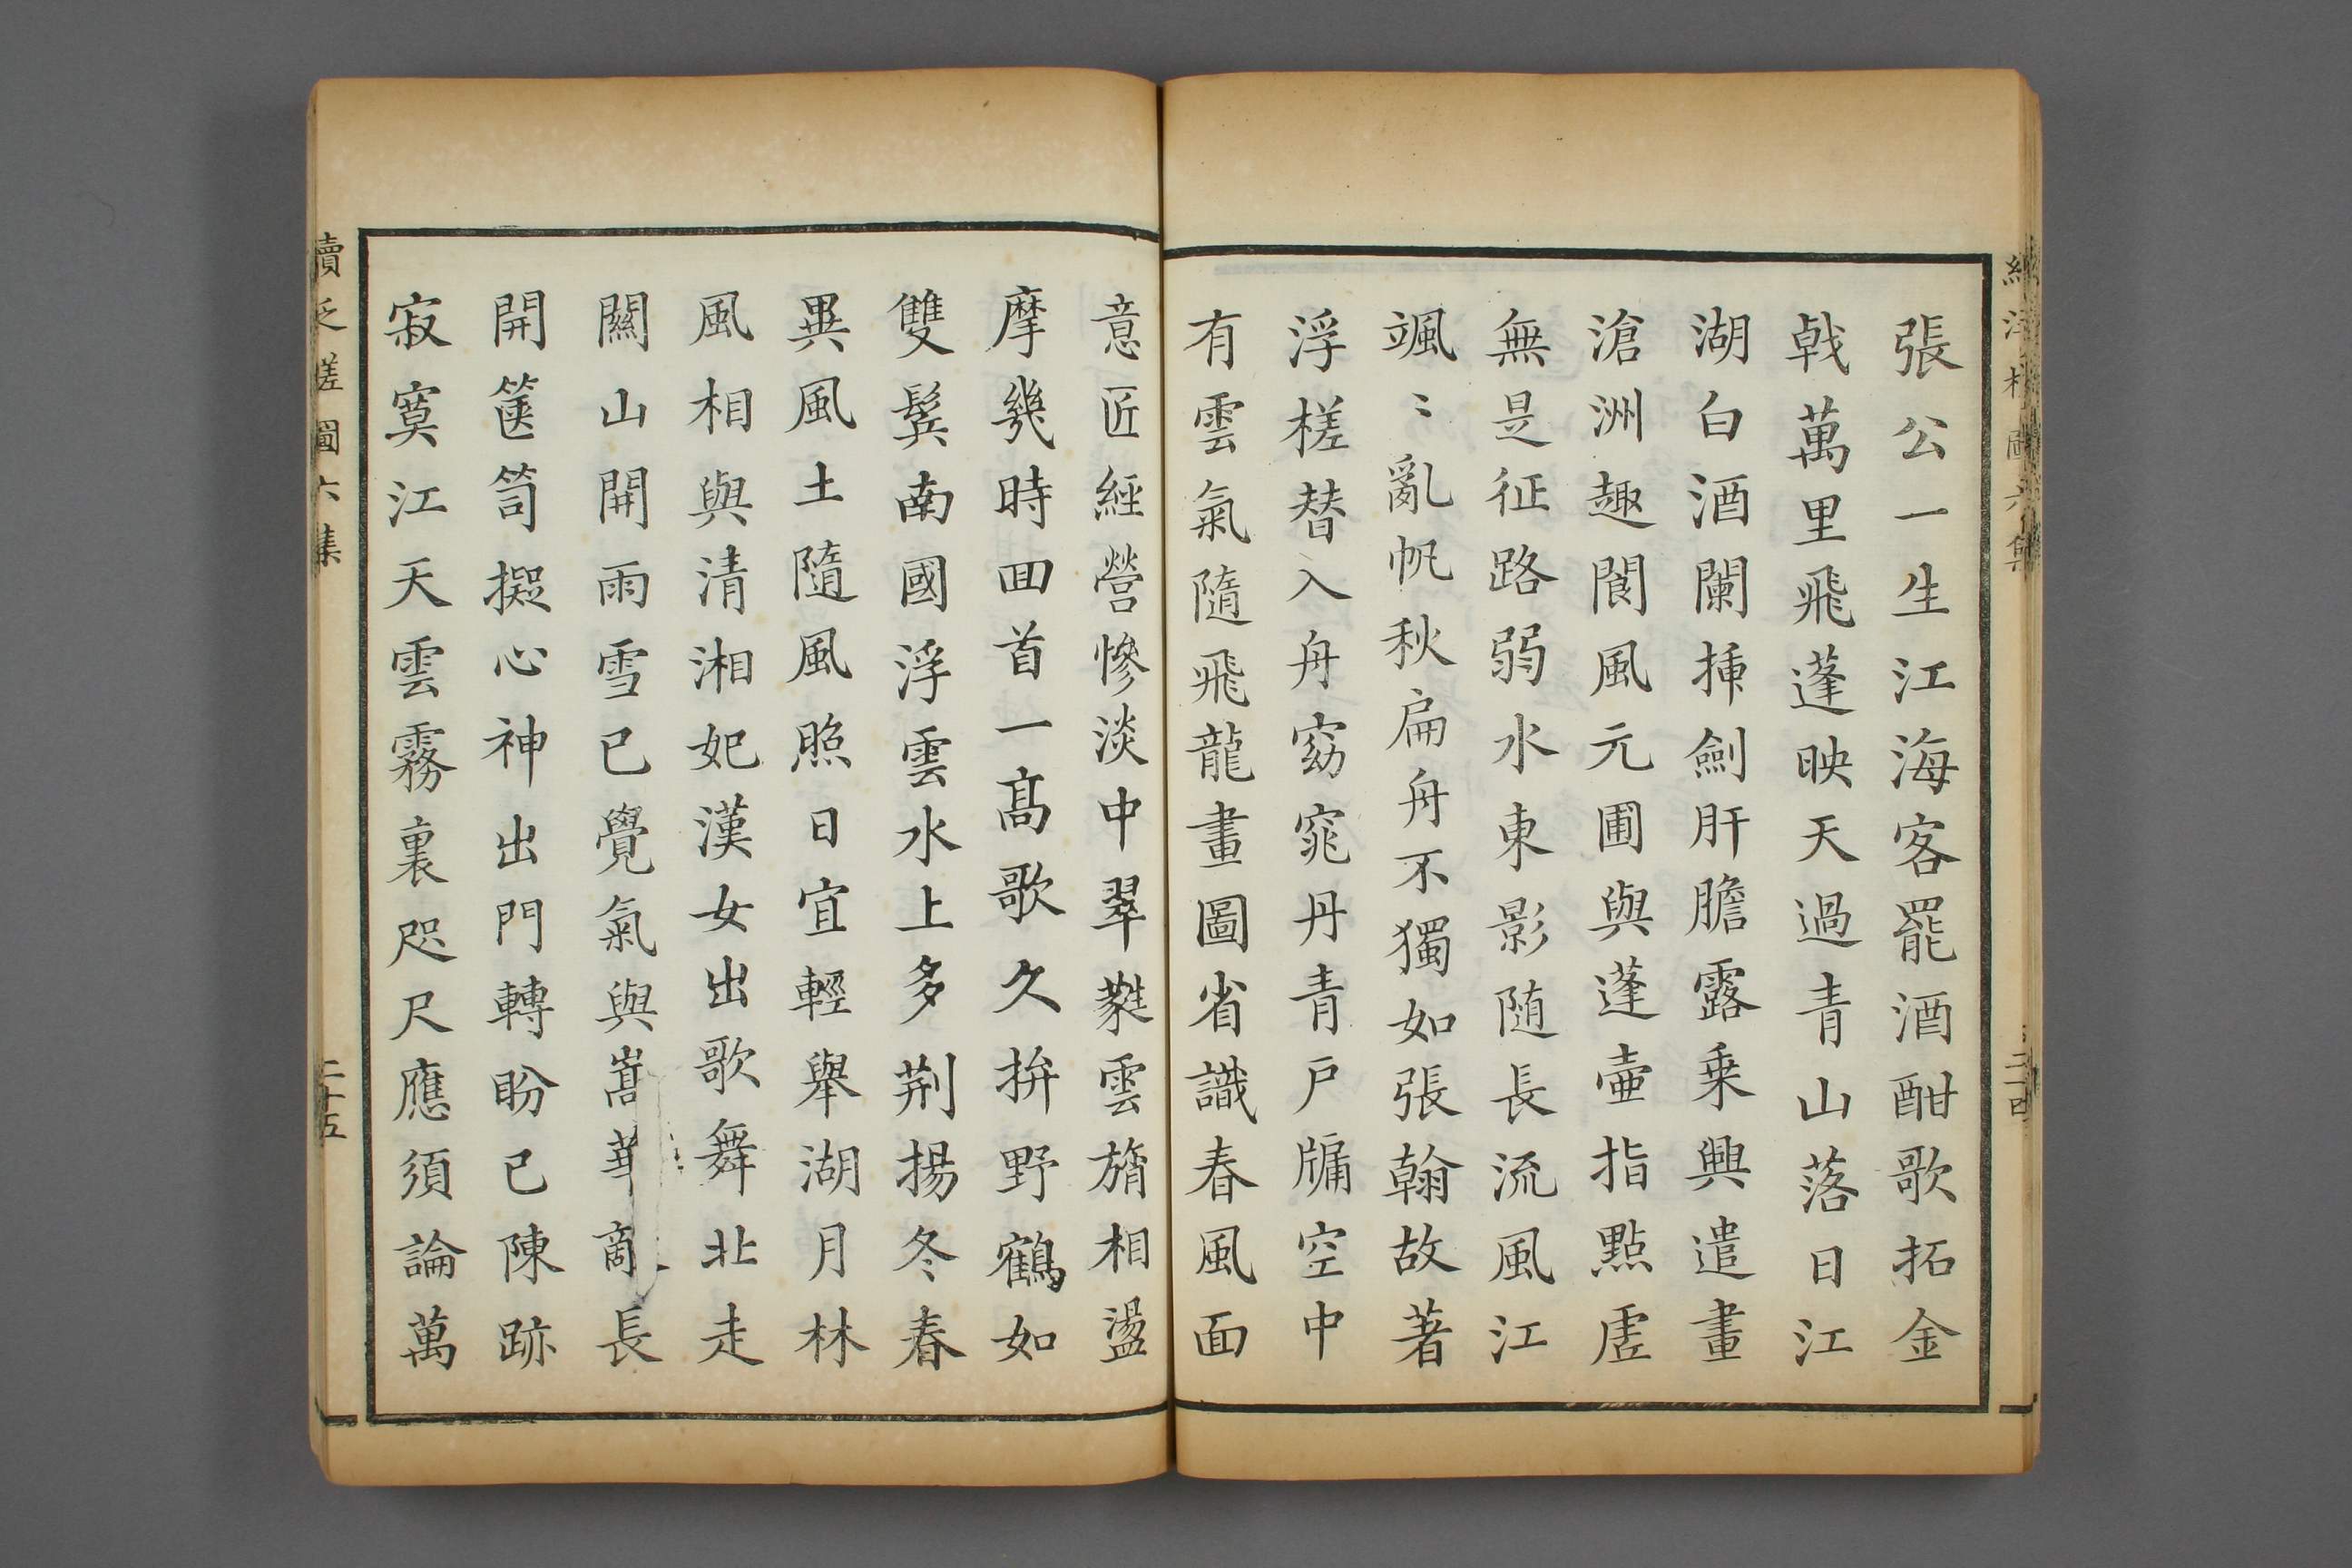 張公一生江海客罷酒酣歌拓金
戟萬里飛蓬映天過青山落日江
湖白酒闌揷劍肝膽露乗興遣畫
滄洲趣閬風元圃與蓬壷指點虛
無是征路弱水東影随長流風江
颯〻亂帆秋扁舟不獨如張翰故著
浮槎替入舟窈窕丹青戶牖空中
有雲氣隨飛龍畫圖省識春風面
意匠經營慘淡中翠蕤雲旓相盪
摩幾時回首一髙歌久拚野鶴如
雙鬂南國浮雲水上多荆揚冬春
異風土隨風照日宜輕舉湖月林
風相與清湘妃漢女出歌舞北走
關山開雨雪已覺氣與嵩華敵長
開篋笥擬心神出門轉盼已陳跡
寂寞江天雲霧裏咫尺應須論萬
續泛槎圖六集
二十五